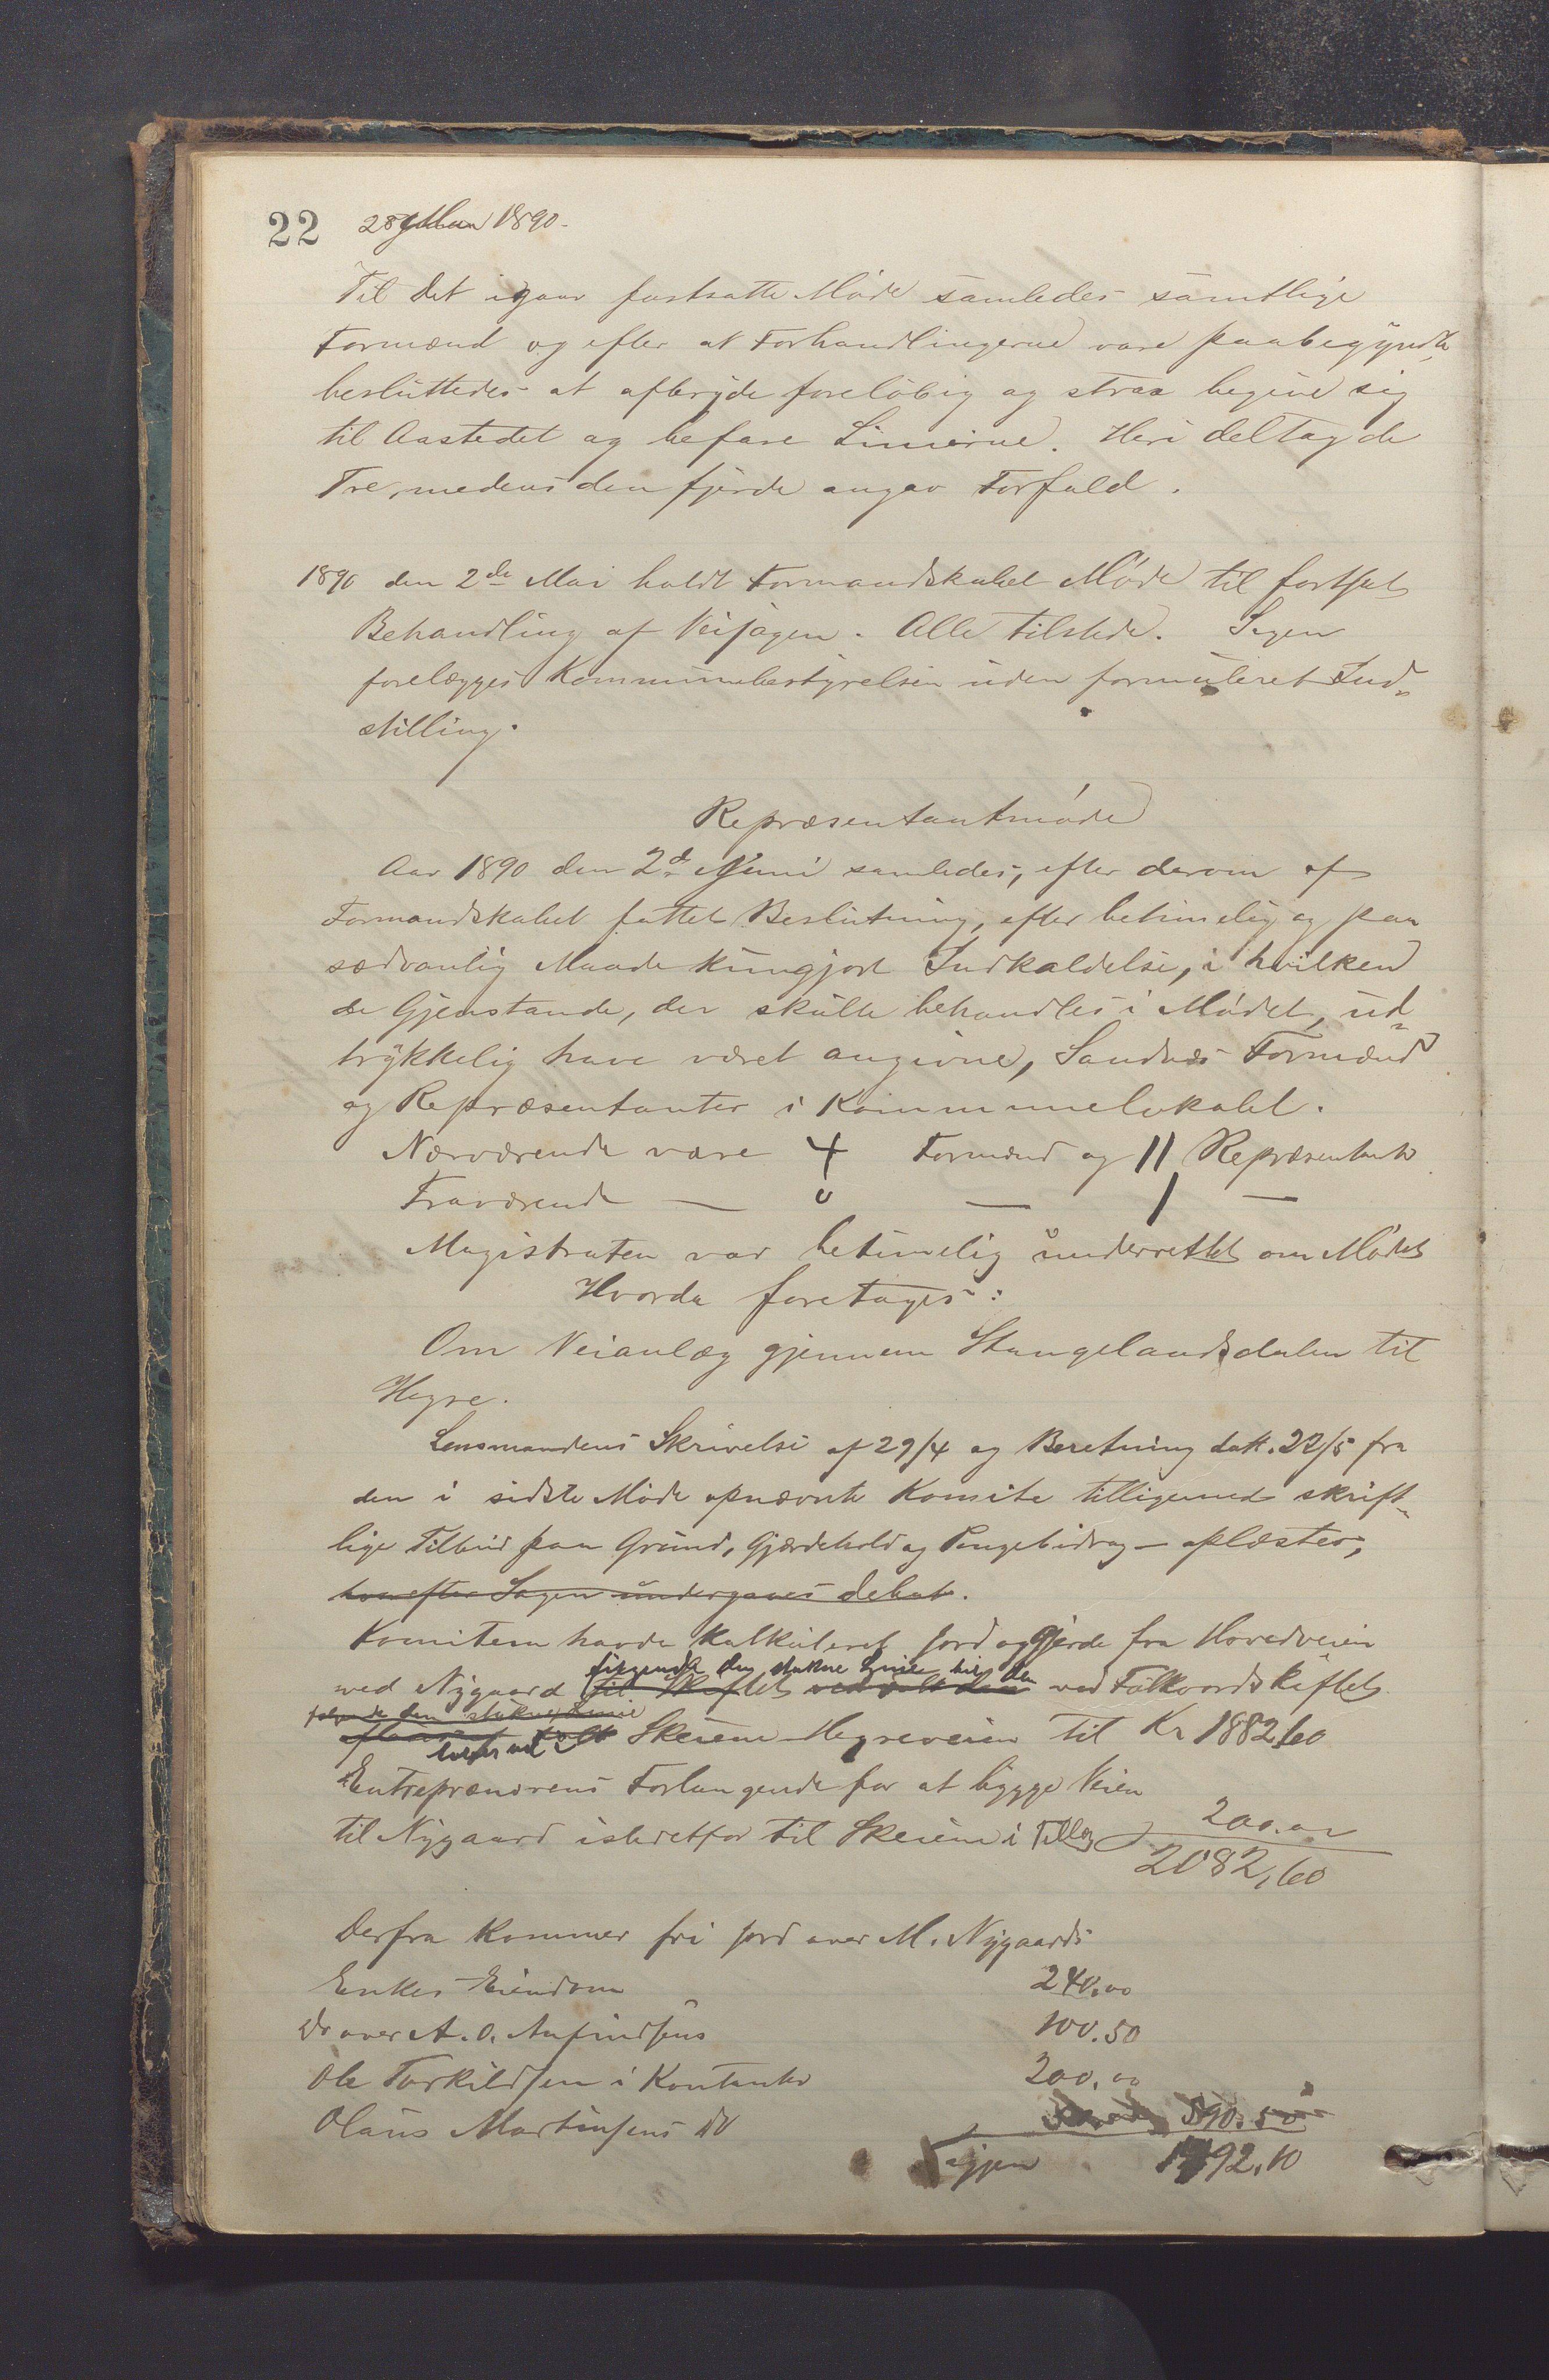 22 28 1890.
Til det igaar fastsatte Møde samledes samtlige
Formænd og efter at Forhandlingerne vare paabegyndt
besluttedes at afbryde foreløbig og strax begive sig
til Aastedet og befare Linierne. Heri deltog de
Tre, medens den fjerde angav Forfald.
1890 den 2de Mai holdt Formandskabet Møde til fortsat
Behandling af Veisagen. Alle tilstede. Sagen
forelægges Kommunebestyrelsen uden formuleret Ind-
stilling.
Repræsentantmøde
Aar 1890 den 2d Juni samledes, efter derom af
Formandskabet fattet Beslutning, efter betimelig og paa
sædvanlig Maade kungjort Indkaldelse, i hvilken
de Gjenstande, der skulle behandles i Mødet, ud-
trykkelig have været angivne, Sandnes Formænd
og Repræsentanter i Kommunelokalet.
Nærværende vare 4 Formænd og 11 Repræsentanter
Fraværende — 0 — 1 —
Magistraten var betimelig underrettet om Mødet
Hvorda foretages:
Om Veianlæg gjennem Stangelandsdalen til
Høgre.
Lensmandens Skrivelse af 29/4 og Beretning dat. 22/5 fra
den i sidste Møde opnævnte Komite tilligemed skrift-
lige Tilbud paa Grund, Gjærdehold og Pengebidrag — oplæstes,
hvorefter Sagen undergaves debat.
Komiteen havde kalkuleret Jord og Gjerde fra Hovedveien
følgende den stukne Linie til den
ved Nygaard til Skiftet ved Folkvordskiftet
følgende den stukne Linie
Skeiene-Høgreveien til Kr 1882,60
Entreprenørens Forlangende for at bygge Veien
til Nygaard istedetfor til Skeiene i Tillæg 200.00
2082,60
Derfra kommer fri Jord over M. Nygaards
Enkes Eiendom 240.00
Do over A. O. Anfindsens 100.50
Ole Torkildsen i Kontanter 200.00
Olaus Martinsens do 590.50
Igjen 1492,10